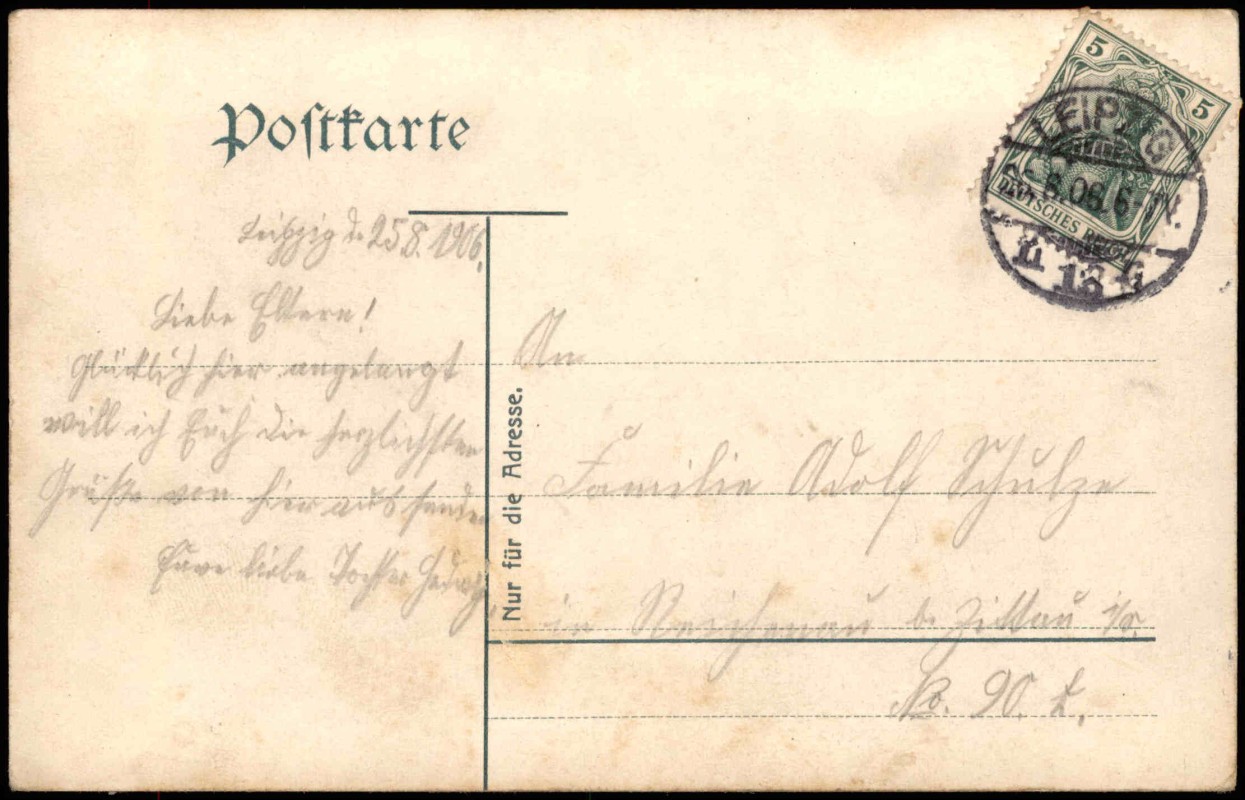 Postkarte
Leipzig d. 25.8.1906.
Liebe Eltern!
Glücklich hier angelangt
will ich Euch die herzlichsten
Grüße von hier aus senden
Eure liebe Tochter Hedwig.
Nur für die Adresse.
An
Familie Adolf Schulze
in Reichenau b. Zittau i/S.
No. 90.
5 5
DEUTSCHES REICH
LEIPZIG
8.06.6-
13